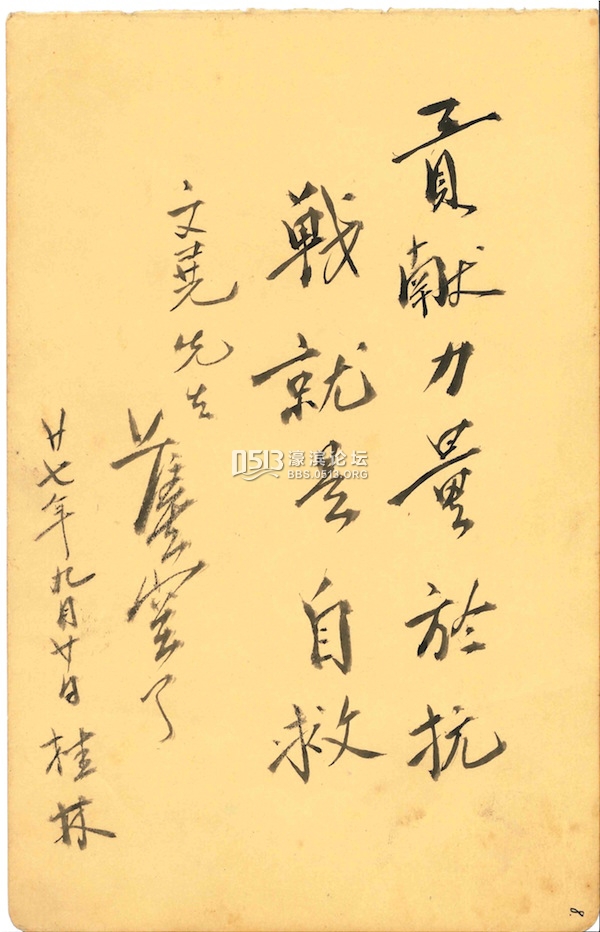 貢献力量於抗
戰就是自救
文堯先生
薩空了
廿七年九月廿日 桂林
0513 濠滨论坛
BBS.0513.ORG
8.